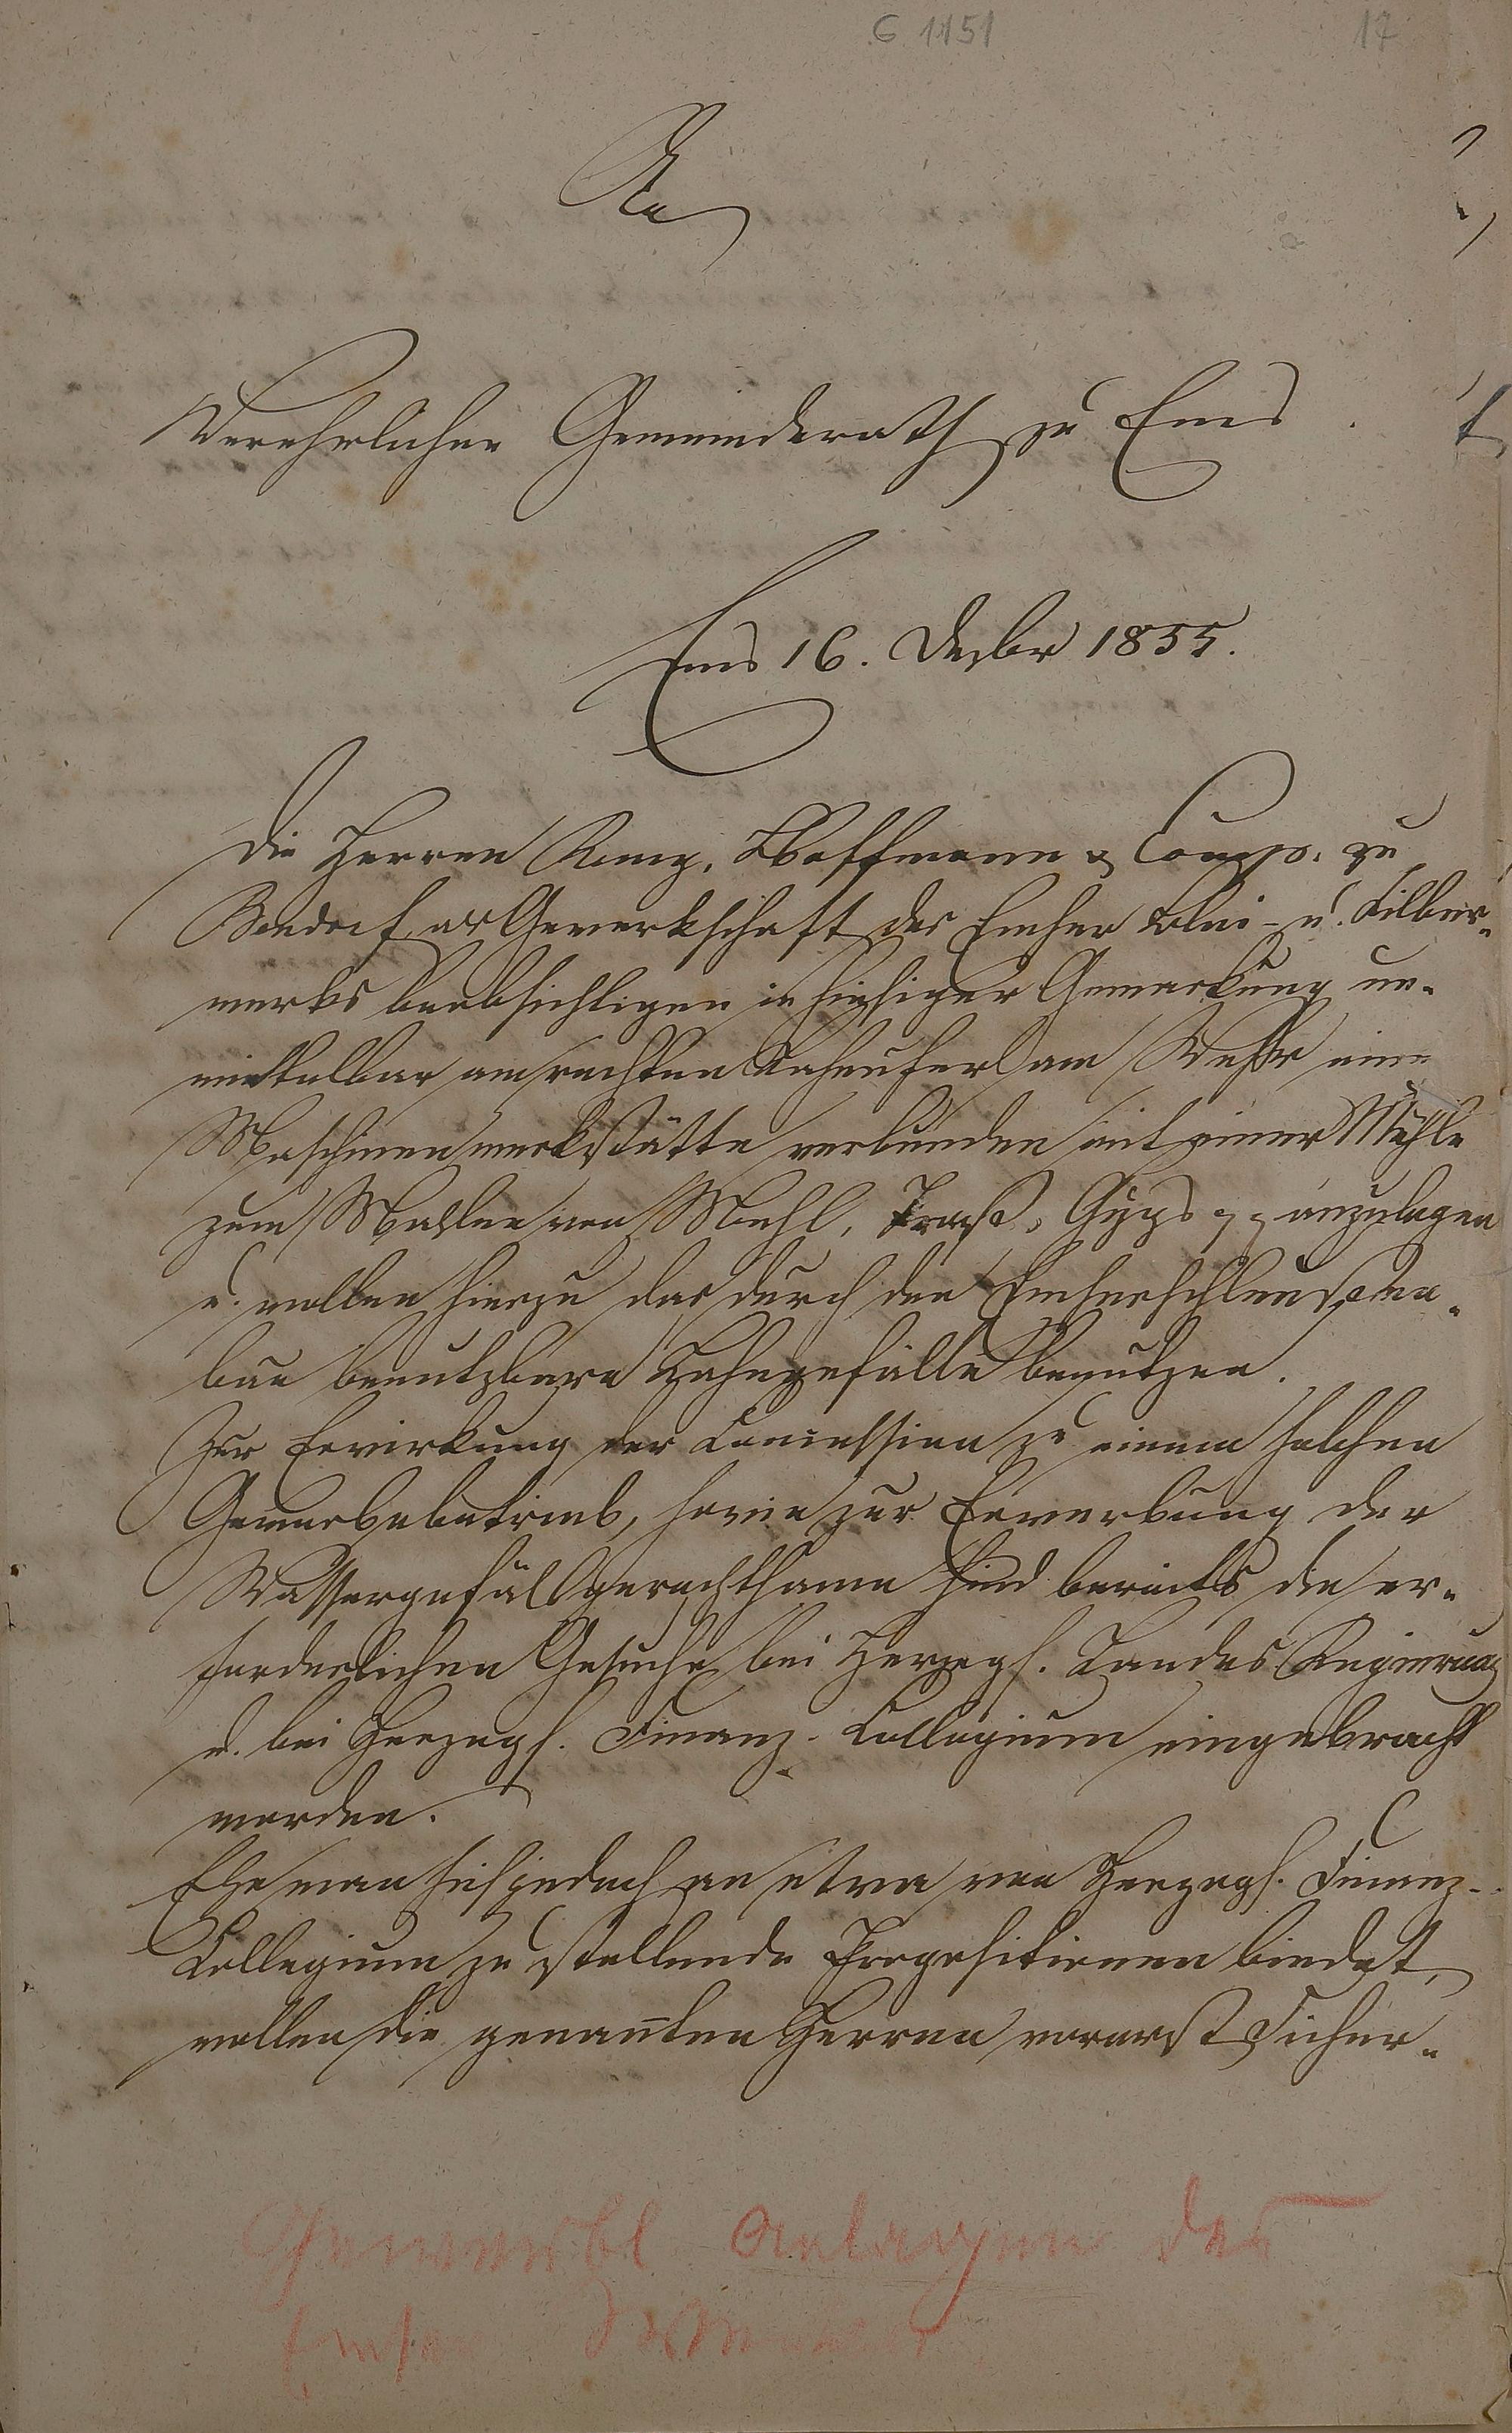 G 1151 17
An
Verehrlichen Gemeinderath zu Ems.
Ems 16. Dezbr 1855.
Die Herren Remy, Hoffmann & Comp. zu
Bendorf als Gewerkschaft des Emser Blei- u. Silber-
werks beabsichtigen in hiesiger Gemarkung un-
mittelbar am rechten Lahnufer am Wehr eine
Maschinenwerkstätte verbunden mit einer Mühle
zum Mahlen von Mehl, Traß, Gyps anzulegen
u. wollen hierzu das durch den Emserschleußen-
bau benutzbare Lahngefälle benutzen.
Zur Erwirkung der Concession zu einem solchen
Gewerbebetrieb, sowie zur Erwerbung der
Wassergefällgerechtsame sind bereits die er-
forderlichen Gesuche bei Herzogl. Landes Regierung
u. bei Herzogl. Finanz-Collegium eingebracht
worden.
Ehe man sich jedoch an etwa von Herzogl. Finanz-
Collegium zu stellende Propositionen bindet,
wollen die genannten Herren vorerst Sicher-
Gewerbl Anlagen des
Emser